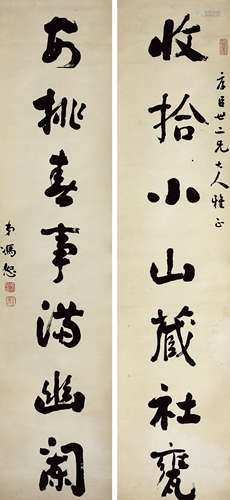 彥臣世二兄大人雅正
收拾小山藏社甕
安排春事滿幽闌
弟馮恕